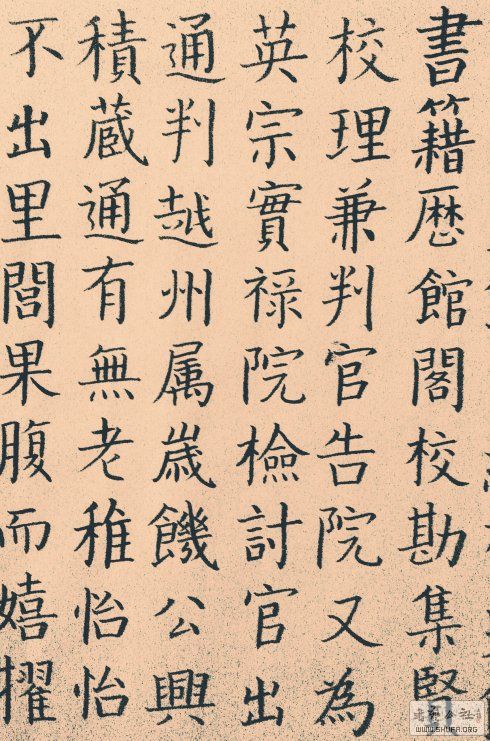 書籍歴館閣校勘集賢
校理兼判官告院又為
英宗實祿院檢討官出
通判越州属歳饑公興
積蔵通有無老稚怡怡
不出里閭果腹而嬉擢
WWW.SHUFA.ORG